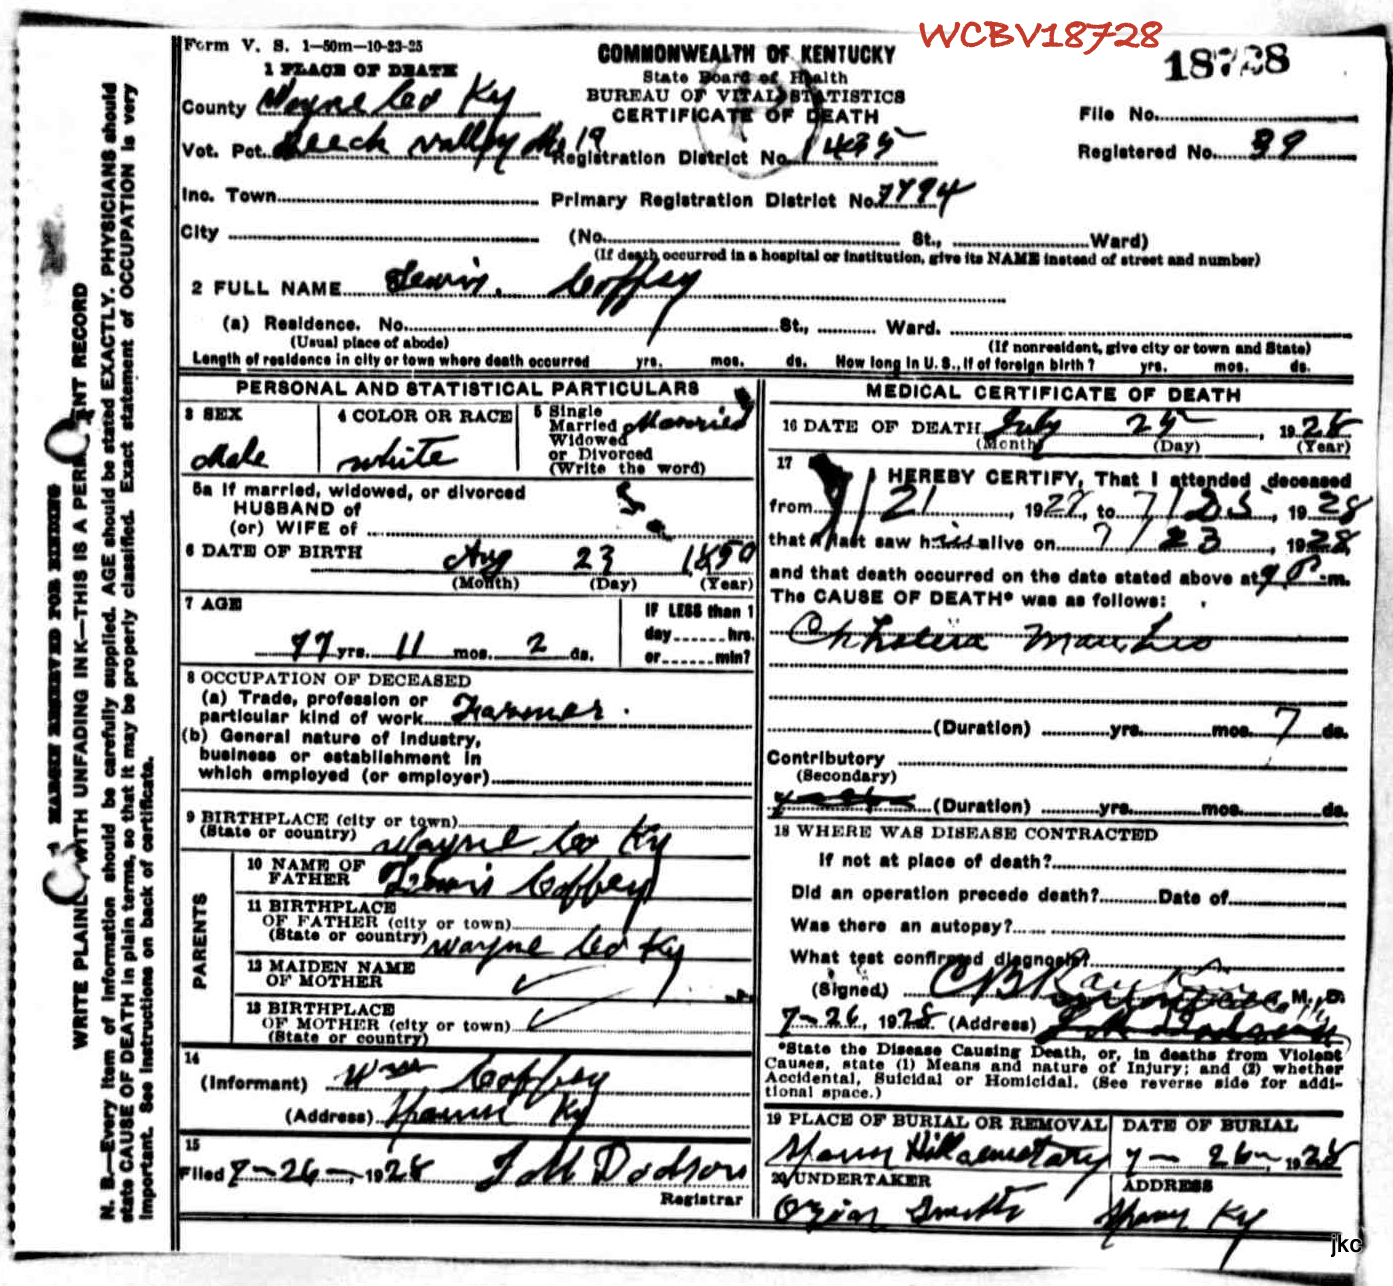 WCBV18728
Form V. S. 1—50m—10-23-25
COMMONWEALTH OF KENTUCKY
18728
1 PLACE OF DEATH
State Board of Health
BUREAU OF VITAL STATISTICS
CERTIFICATE OF DEATH
County Wayne Co Ky
File No.
Vot. Pct. Beech Valley No 19
Registration District No. 435
Registered No. 39
Inc. Town
Primary Registration District No. 7794
City
(No. St., Ward)
(If death occurred in a hospital or institution, give its NAME instead of street and number)
2 FULL NAME Lewis. Coffey
(a) Residence. No. St., Ward.
(Usual place of abode)
(If nonresident, give city or town and State)
Length of residence in city or town where death occurred yrs. mos. ds. How long in U. S., if of foreign birth? yrs. mos. ds.
PERSONAL AND STATISTICAL PARTICULARS
3 SEX
Male
4 COLOR OR RACE
white
5 Single
Married
Widowed
or Divorced
(Write the word)
Married
5a If married, widowed, or divorced
HUSBAND of
(or) WIFE of
6 DATE OF BIRTH
Aug 23 1850
(Month) (Day) (Year)
7 AGE
77 yrs. 11 mos. 2 ds.
IF LESS than 1
day hrs.
or min?
8 OCCUPATION OF DECEASED
(a) Trade, profession or
particular kind of work Farmer.
(b) General nature of Industry,
business or establishment in
which employed (or employer)
9 BIRTHPLACE (city or town)
(State or country) Wayne Co Ky
PARENTS
10 NAME OF
FATHER Lewis Coffey
11 BIRTHPLACE
OF FATHER (city or town)
(State or country) Wayne Co Ky
12 MAIDEN NAME
OF MOTHER
13 BIRTHPLACE
OF MOTHER (city or town)
(State or country)
14
(Informant) Wm Coffey
(Address) Spann Ky
15
Filed 7-26-, 1928 J M Dodson
Registrar
MEDICAL CERTIFICATE OF DEATH
16 DATE OF DEATH July 25, 1928
(Month) (Day) (Year)
17
I HEREBY CERTIFY, That I attended deceased
from 7/21, 1928, to 7/25, 1928
that I last saw his alive on 7/23, 1928,
and that death occurred on the date stated above at 9 P m.
The CAUSE OF DEATH* was as follows:
Cholera Morbus
(Duration) yrs. mos. 7 ds.
Contributory
(Secondary)
(Duration) yrs. mos. ds.
18 WHERE WAS DISEASE CONTRACTED
If not at place of death?
Did an operation precede death? Date of
Was there an autopsy?
What test confirmed diagnosis?
(Signed) C B M. D.
7-26, 1928 (Address)
*State the Disease Causing Death, or, in deaths from Violent
Causes, state (1) Means and nature of Injury; and (2) whether
Accidental, Suicidal or Homicidal. (See reverse side for addi-
tional space.)
19 PLACE OF BURIAL OR REMOVAL
Spann Hill cemetary
DATE OF BURIAL
7- 26-, 1928
20 UNDERTAKER
ADDRESS
Spann Ky
MARGIN RESERVED FOR BINDING
WRITE PLAINLY, WITH UNFADING INK—THIS IS A PERMANENT RECORD
N. B.—Every item of information should be carefully supplied. AGE should be stated EXACTLY. PHYSICIANS should
state CAUSE OF DEATH in plain terms, so that it may be properly classified. Exact statement of OCCUPATION is very
important. See instructions on back of certificate.
jkc